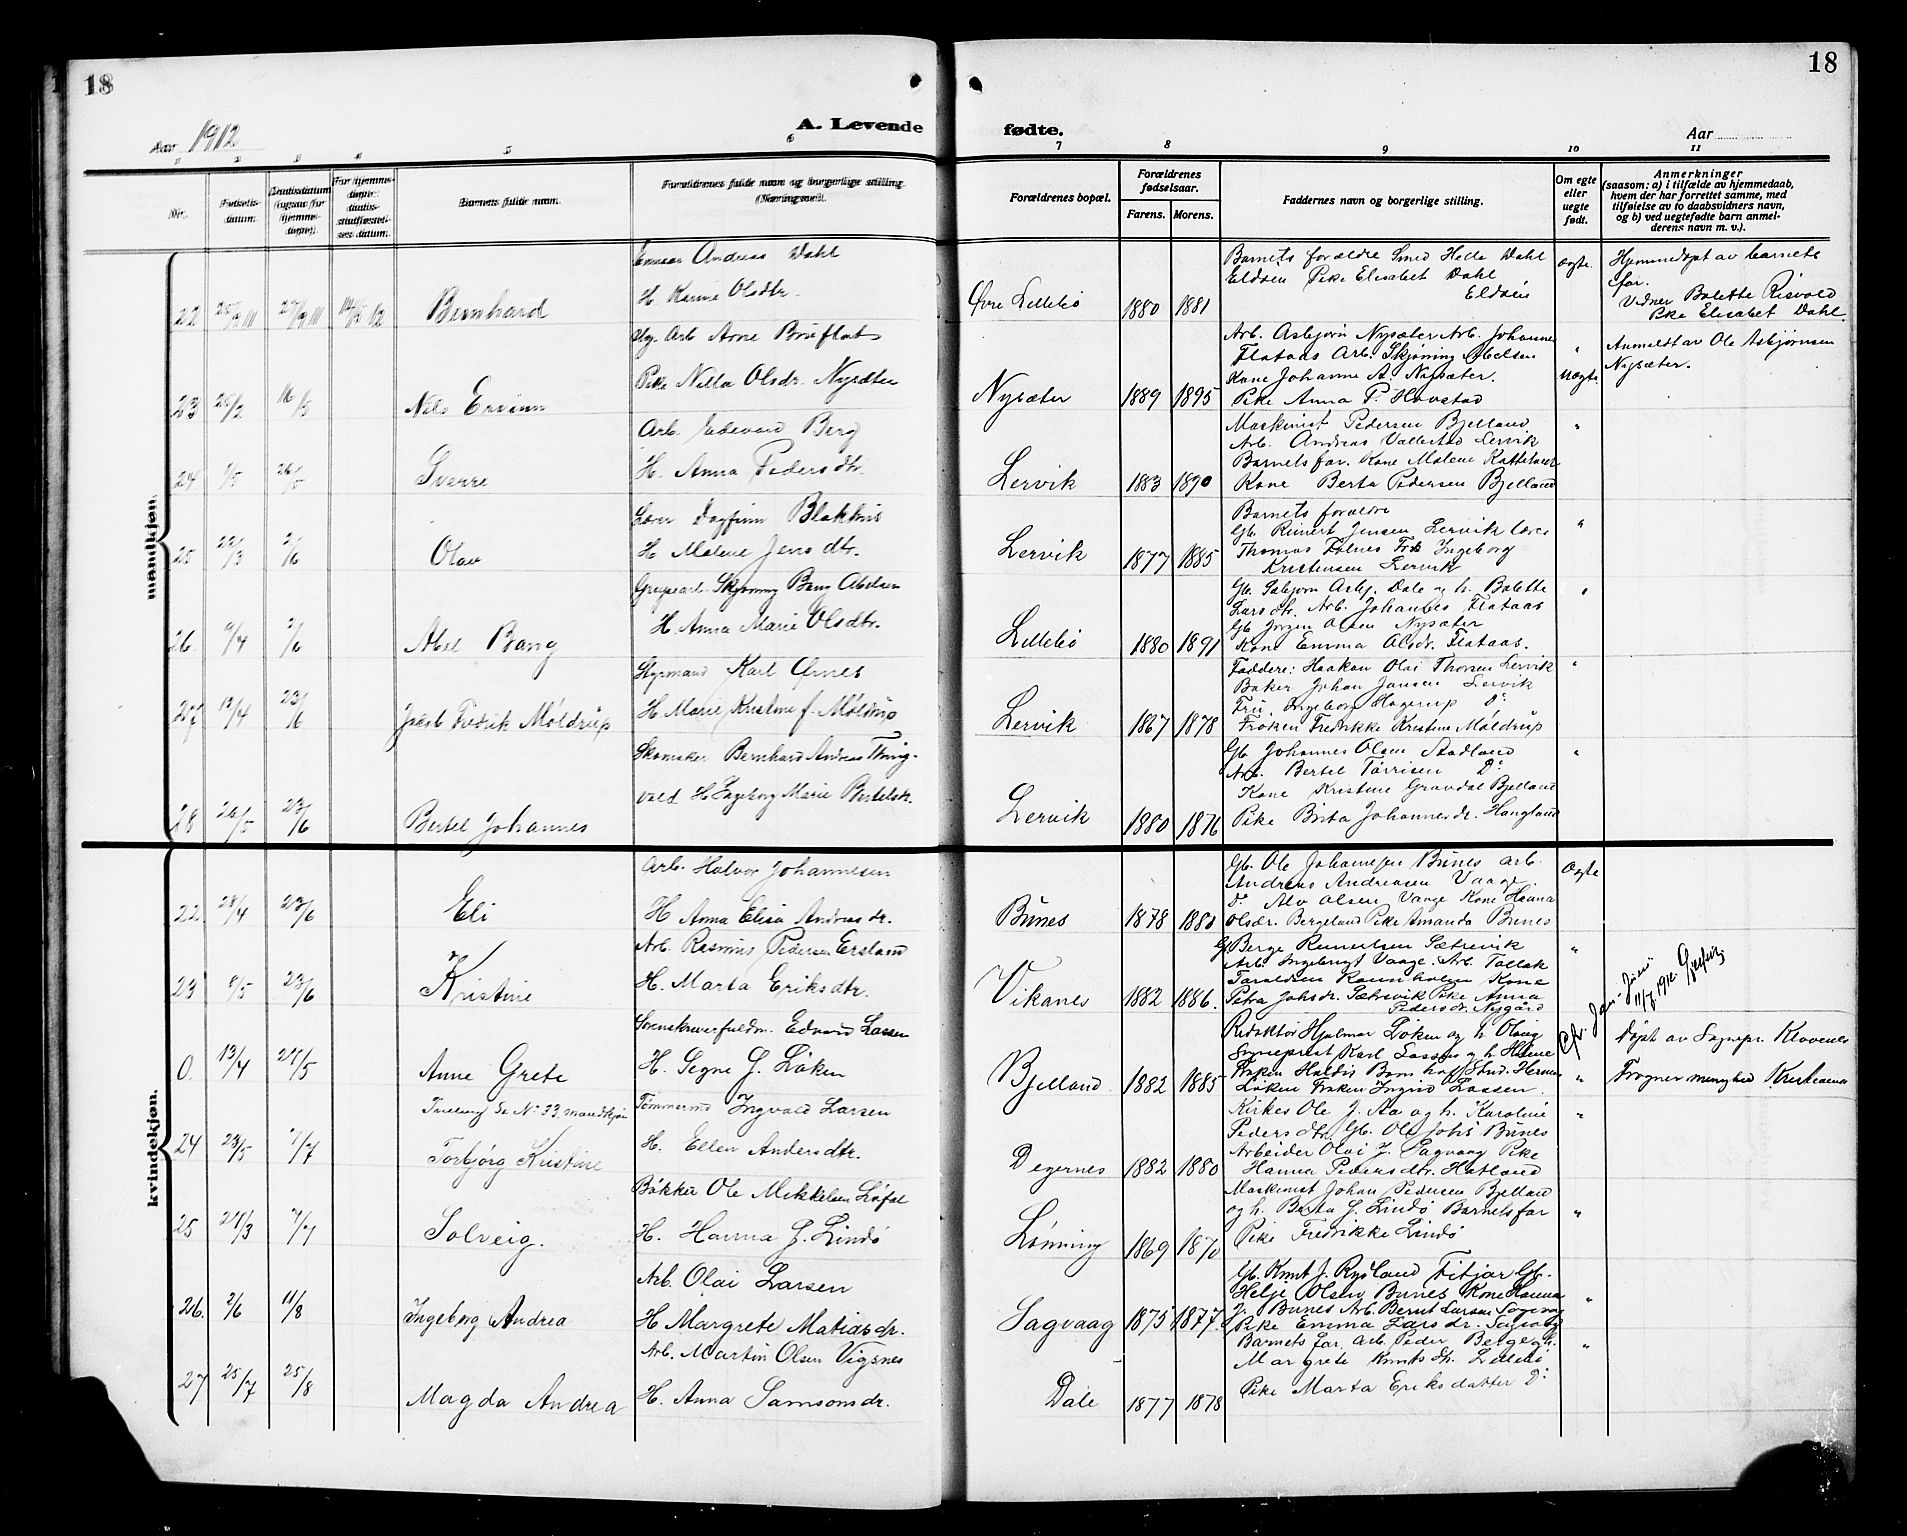 18
18
Aar 1912
A. Levende
fødte.
Aar
1 2 3 4 5 6
7 8 9 10 11
Nr.
Fødselsdatum.
Daabsdatum (ogsaa for hjemmedøpte).
For hjemmedøpte: daabsstadfæstelses datum.
Barnets fulde navn.
Forældrenes fulde navn og borgerlige stilling. (Næringsvei).
Forældrenes bopæl.
Forældrenes fødselsaar.
Farens. Morens.
Faddernes navn og borgerlige stilling.
Om egte eller uegte født.
Anmerkninger
(saasom: a) i tilfælde av hjemmedaab,
hvem der har forrettet samme, med
tilføielse av to daabsvidners navn,
og b) ved uegtefødte barn anmel-
derens navn m. v.).
mandkjøn.
Andreas Dahl
22 Bernhard
H. Karine Olsdtr.
Øvre Lillebø 1880 1881
Barnets forældre Smed Helle Dahl
Eldøen Pike Elisabet Dahl
Eldøen
ægte.
Hjemmedøpt av barnets
far.
Vidner Bolette Risvold
Pike Elisabet Dahl.
Ug. Arb. Arne Brueflat
23 25/2 16/5 Nils
Pike Nilla Olsdr. Nysæter
Nysæter 1889 1895
Arb. Asbjørn Nysæter Arb. Johannes
Flataas Arb. Skjøning Abelsen
Kone Johanne A. Nysæter.
Pike Anna P. Hovstad
" uægte.
Anmeldt av Ole Asbjørnsen
Nysæter.
Arb. Edevard Berg
24 1/5 26/5 Sverre
H. Anna Pedersdtr.
Lervik 1883 1890
Maskinist Pedersen Bjelland
Arb. Andreas Vallestad Lervik
Barnets far. Kone Malene
Kone Berta Pedersen Bjelland
"
Lærer Dagfinn Blakhus
25 22/3 2/6 Olav
H. Malene Jensdtr.
Lervik 1877 1885
Barnets forældre
Gb. Reinert Jensen Lervik lærer
Thomas Frk Ingeborg
Kristensen Lervik
"
Skjøning Bang Abelsen
26. 9/4 2/6 Abel Bang
H. Anna Marie Olsdtr.
Lillebø 1880 1891
Gb. Asbj. Dale og h. Bolette
Larsdtr. Arb. Johannes Flataas
Gb. Jørgen Olsen Nysæter
Kone Emma Olsdr. Flataas.
"
Styrmand Karl Ørnes
27 13/4 23/6 Fredrik Møldrup
H. Marie Kristine f. Møldrup
Lervik 1867 1878
Faddere: Haakon Olai Thorsen Lervik
Baker Johan Jansen Lervik
Fru Ingeborg Hagerup Do
Frøken Fredrikke Kristine Møldrup
"
Skomaker Bernhard Andreas Thing-
28 26/5 23/6 Bertel Johannes
vald H. Ingeborg Marie Bertelsdr.
Lervik 1880 1876
Gb. Johannes Olsen Stadland
Arb. Bertel Tørrisen Do
Kone Kristine Gravdal Bjelland
Pike Brita Johannesdr. Haugland
"
kvindekjøn.
Arb. Halvor Johannesen
22. 28/4 23/6 Eli
H Anna Elisa Andreasdr.
Bunes 1878 1880
Gb. Ole Johannesen Bunes arb.
Andreas Andreasen Vaage
Do Alv Olsen Vaage Kone Hanna
Olsdr. Bergeland Pike Amanda Bunes
Ægte
Arb. Rasmus Pedersen Ersland
23 8/5 23/6 Kristine
H. Marta Eriksdtr.
Vikanes 1882 1886.
G. Berge Reinertsen Sætrevik
Arb. Ingebrigt Vaage. Arb. Tollak
Taraldsen Kone
Petra Johsdr. Sætrevik Pike Anna
Pedersdr. Nygård
"
11/7 1912.
Edvard Lassen
0. 13/4 27/5 Anne Grete
H. Signe G. Løken
Bjelland 1882 1885
Redaktør Hjalmar Løken og h. Olaug
Sogneprest Karl Lassen og h. Helene
Frøken Haldis Stud. Herman
Løken Frøken Ingrid Lassen.
"
Døpt av Sognepr. Klavenes
Frogner menighed Kristiania
Tvilling Se No 33 mandkjøn
Tømmermd Ingvald Larsen
24 23/5 7/7 Torbjørg Kristine
H. Ellen Andersdtr.
Degernes 1882 1880
Kirkes Ole J. Aa og h. Karoline
Pedersdtr. Gb. Ole Johs Bunes
Arbeider Olai J. Sagvaag Pike
Hanna Pedersdtr. Hatland
"
Bøkker Ole Mikkelsen Løfal
25 27/3 7/7 Solveig.
H. Hanna G. Lindø
Lønning 1869 1870
Maskinist Johan Pedersen Bjelland
og h. Berta G. Lindø Barnets far
Pike Fredrikke Lindø
"
Arb. Olai Larsen
26. 2/6 11/8 Ingeborg Andrea
H Margrete Matiasdr.
Sagvaag 1875 1877.
Gb. Knut J. Rysland Fitjar Gb.
Helge Olsen Bunes Kone Hanna
J. Bunes Arb. Bernt Larsen Sagvaag
Pike Emma Larsdr. Sagvaag
"
Arb. Martin Olsen Vigsnes
27 25/7 25/8 Magda Andrea
H. Anna Samsonsdr.
Dale 1877 1878
Barnets far. arb. Peder Berge g.h.
Margrete Knutsdtr. Lillebø
Pike Marta Eriksdatter Do
"